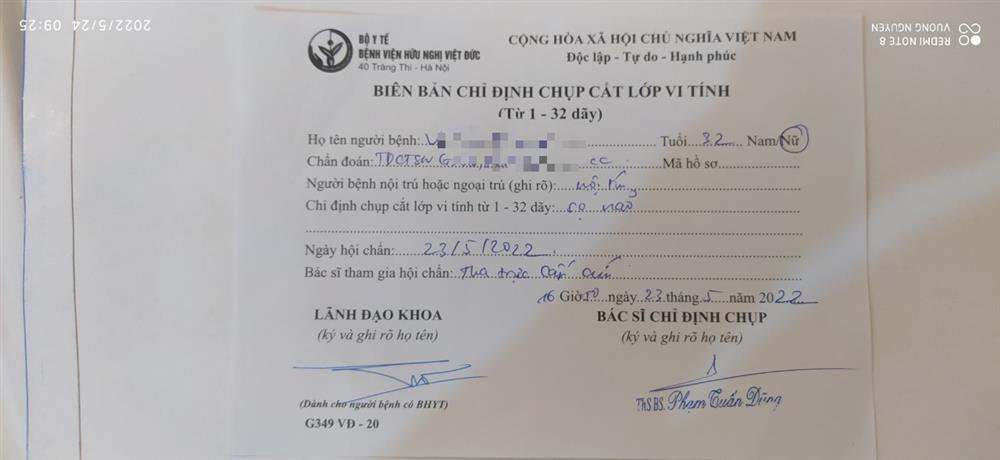 BỘ Y TẾ
BỆNH VIỆN HỮU NGHỊ VIỆT ĐỨC
40 Tràng Thi - Hà Nội
CỘNG HÒA XÃ HỘI CHỦ NGHĨA VIỆT NAM
Độc lập - Tự do - Hạnh phúc
BIÊN BẢN CHỈ ĐỊNH CHỤP CẮT LỚP VI TÍNH
(Từ 1 - 32 dãy)
Họ tên người bệnh: Tuổi 32 Nam/Nữ
Chẩn đoán: Mã hồ sơ
Người bệnh nội trú hoặc ngoại trú (ghi rõ):
Chỉ định chụp cắt lớp vi tính từ 1 - 32 dãy: sọ não
Ngày hội chẩn: 23/5/2022
Bác sĩ tham gia hội chẩn: trực cấp cứu
16 Giờ ngày 23 tháng 5 năm 2022
LÃNH ĐẠO KHOA
(ký và ghi rõ họ tên)
BÁC SĨ CHỈ ĐỊNH CHỤP
(ký và ghi rõ họ tên)
ThS.BS. Phạm Tuấn Dũng
(Dành cho người bệnh có BHYT)
G349 VĐ - 20
REDMI NOTE 8
VUONG NGUYEN
2022/5/24 09:25